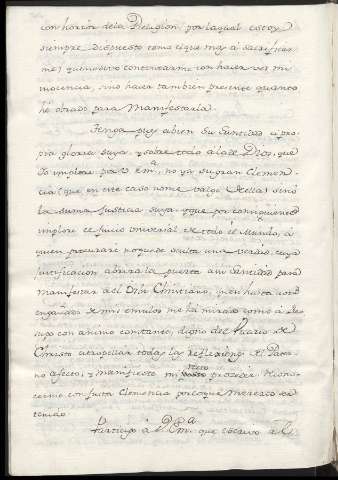 con horror de la Religion, por la qual estoy
siempre dispuesto como sigue muy a sacrificar
me) quiero no contentarme con hacer ver mi
inocencia, sino hacer tambien presente quanto
hé obrado para manifestarla.
Tenga pues a bien Su Santidad a pro-
pia gloria suya, y sobre todo a la de Dios, que
Yo implore por V. Em.ª no ya su gran Clemen-
cia (que en este caso no me valgo de ella) sinó
la suma Justicia suya, y que por consiguiente
implore el Juicio universal de todo el Mundo, á
quien procuraré no quede oculta una verdad, cuya
justificacion abrira la puerta a su Santidad para
manifestar a el Orbe Christiano, que en hasta aora
engañados de mis emulos me há mirado como a
con animo constante, digno del Vicario de
Christo atropellar todas las reflexiones de
afecto, y manifieste mi recto proceder,
con justa Clemencia por lo que merezco
tenido.
Participo á V. Em.ª que escrivo á el